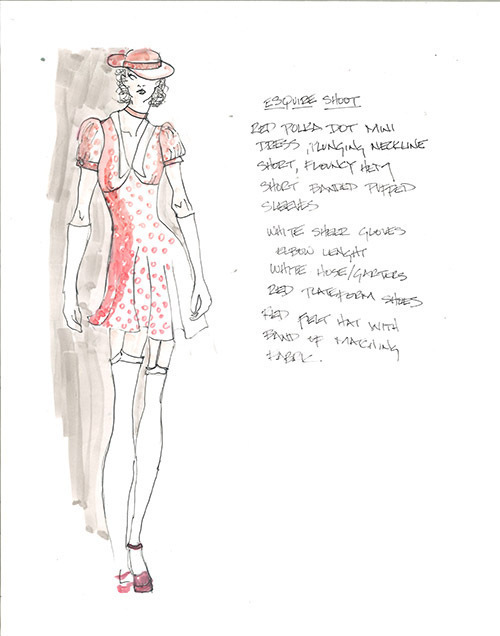 ESQUIRE SHOOT
RED POLKA DOT MINI
DRESS, PLUNGING NECKLINE
SHORT, FLOUNCY HEM
SHORT BANDED PUFFED
SLEEVES
WHITE SHEER GLOVES
ELBOW LENGHT
WHITE HOSE/GARTERS
RED PLATEFORM SHOES
RED FELT HAT WITH
BAND OF MATCHING
FABRIC.